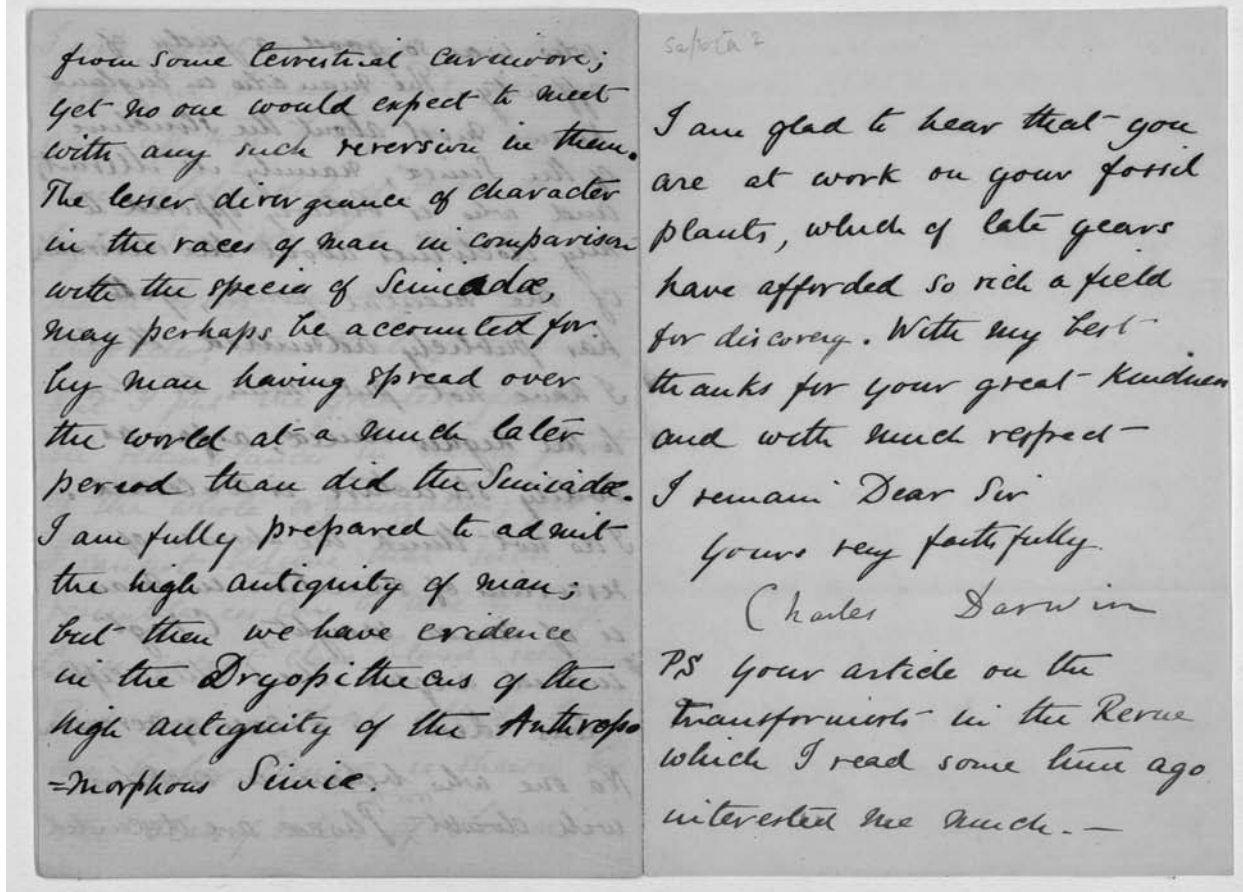 from some terrestrial carnivore;
yet no one would expect to meet
with any such reversion in them.
The lesser divergeance of character
in the races of man in comparison
with the species of Simiadæ,
may perhaps be accounted for
by man having spread over
the world at a much later
period than did the Simiadæ.
I am fully prepared to admit
the high antiquity of man;
but then we have evidence
in the Dryopithecus of the
high antiquity of the Anthropo
=morphous Simiæ.
Saporta?
I am glad to hear that you
are at work on your fossil
plants, which of late years
have afforded so rich a field
for discovery. With my best
thanks for your great kindness
and with much respect
I remain Dear Sir
yours very faithfully.
Charles Darwin
PS your article on the
transformists in the Revue
which I read some time ago
interested me much. —